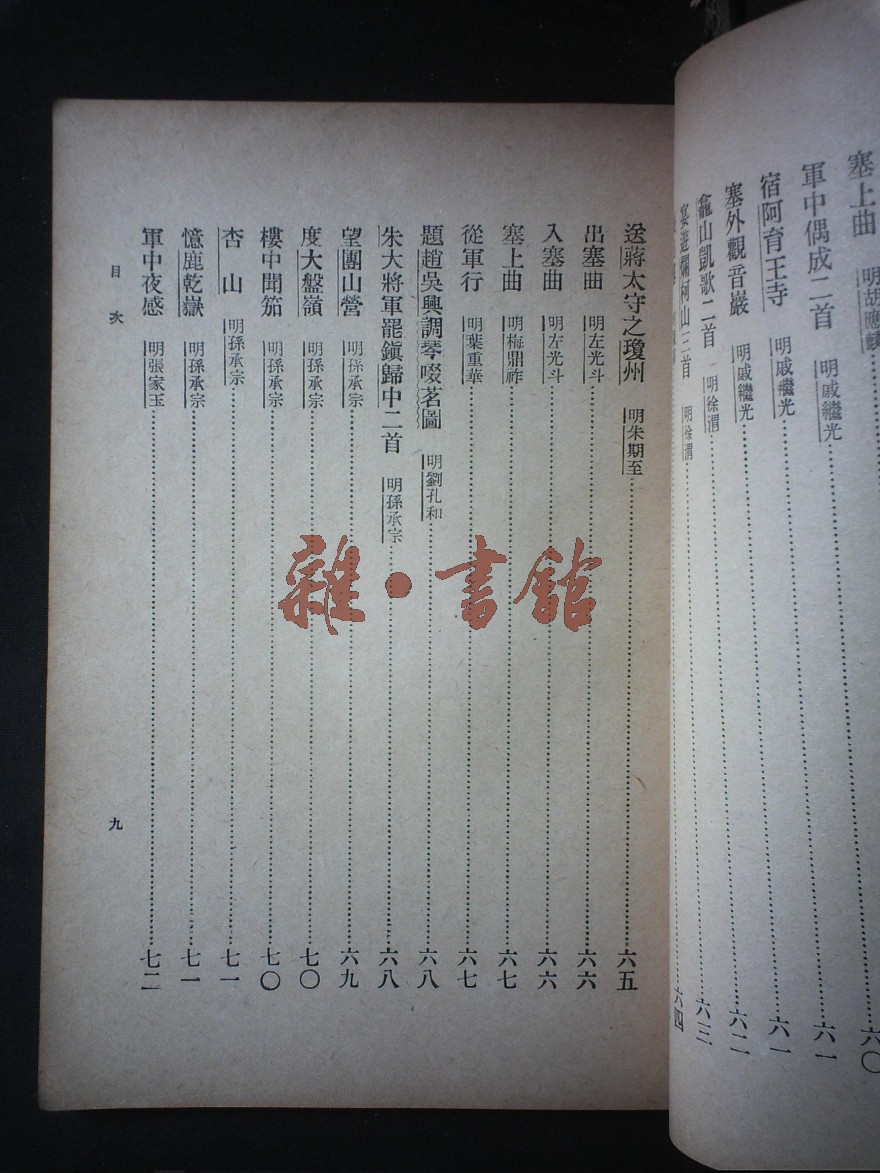 塞上曲 明胡應麟 六〇
軍中偶成二首 明戚繼光 六一
宿阿育王寺 明戚繼光 六一
塞外觀音巖 明戚繼光 六二
龕山凱歌二首 明徐渭 六三
宴遊爛柯山三首 明徐渭 六四
送蔣太守之瓊州 明朱期至 六五
出塞曲 明左光斗 六六
入塞曲 明左光斗 六六
塞上曲 明梅鼎祚 六七
從軍行 明葉重華 六七
題趙吳興調琴啜茗圖 明劉孔和 六八
朱大將軍罷鎭歸中二首 明孫承宗 六八
望團山營 明孫承宗 六九
度大盤嶺 明孫承宗 七〇
樓中聞笳 明孫承宗 七〇
杏山 明孫承宗 七一
憶鹿乾嶽 明孫承宗 七一
軍中夜感 明張家玉 七二
目次
九
雜·書館